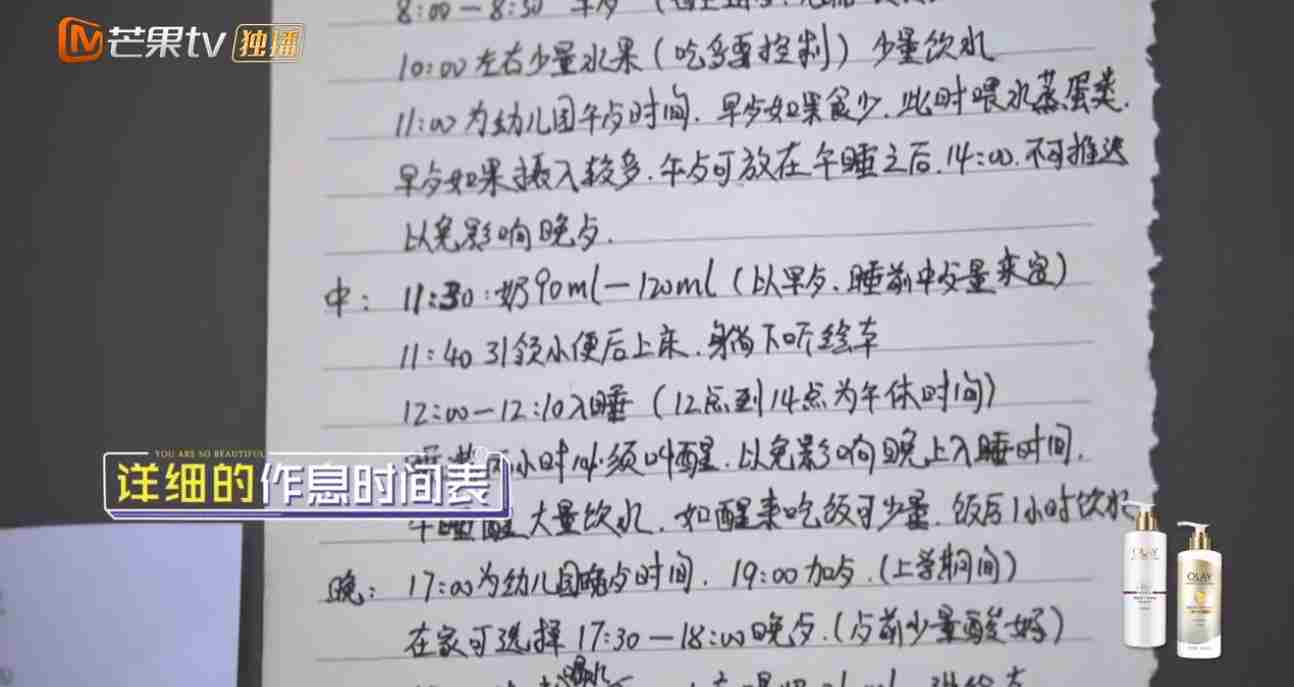 芒果tv 独播
8:00-8:30 早歺
10:00左右少量水果(吃多要控制) 少量饮水
11:00为幼儿园午歺时间. 早歺如果食少. 此时喂水蒸蛋类.
早歺如果摄入较多. 午歺可放在午睡之后. 14:00. 不可推迟
以免影响晚歺.
中: 11:30:奶90ml-120ml(以早歺. 睡前中歺量来定)
11:40引领小便后上床. 躺下听绘本
12:00-12:10入睡(12点到14点为午休时间)
小时必须叫醒. 以免影响晚上入睡时间.
YOU ARE SO BEAUTIFUL
详细的作息时间表
午睡醒大量饮水. 如醒来吃饭可少量. 饭后1小时饮水
晚: 17:00为幼儿园晚歺时间. 19:00加歺.(上学期间)
在家可选择17:30-18:00晚歺.(歺前少量酸奶)
OLAY
OLAY